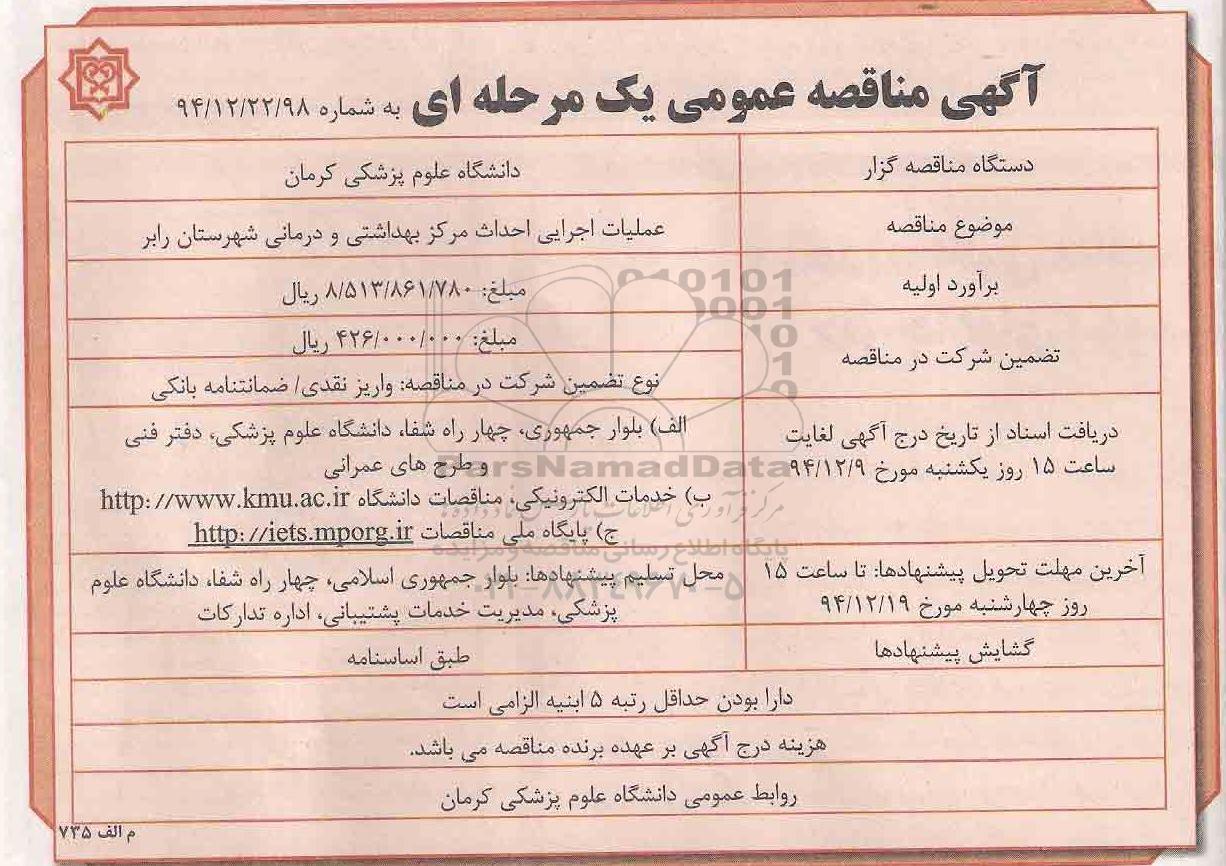 آگهی مناقصه عمومی یک مرحله ای به شماره ۹۴/۱۲/۲۲/۹۸
دستگاه مناقصه گزار
دانشگاه علوم پزشکی کرمان
موضوع مناقصه
عملیات اجرایی احداث مرکز بهداشتی و درمانی شهرستان رابر
برآورد اولیه
مبلغ: ۸/۵۱۳/۸۶۱/۷۸۰ ریال
تضمین شرکت در مناقصه
مبلغ: ۴۲۶/۰۰۰/۰۰۰ ریال
نوع تضمین شرکت در مناقصه: واریز نقدی/ ضمانتنامه بانکی
دریافت اسناد از تاریخ درج آگهی لغایت
ساعت ۱۵ روز یکشنبه مورخ ۹۴/۱۲/۹
الف) بلوار جمهوری، چهار راه شفا، دانشگاه علوم پزشکی، دفتر فنی
و طرح های عمرانی
ب) خدمات الکترونیکی، مناقصات دانشگاه http://www.kmu.ac.ir
ج) پایگاه ملی مناقصات http://iets.mporg.ir
آخرین مهلت تحویل پیشنهادها: تا ساعت ۱۵
روز چهارشنبه مورخ ۹۴/۱۲/۱۹
محل تسلیم پیشنهادها: بلوار جمهوری اسلامی، چهار راه شفا، دانشگاه علوم
پزشکی، مدیریت خدمات پشتیبانی، اداره تدارکات
گشایش پیشنهادها
طبق اساسنامه
دارا بودن حداقل رتبه ۵ ابنیه الزامی است
هزینه درج آگهی بر عهده برنده مناقصه می باشد.
روابط عمومی دانشگاه علوم پزشکی کرمان
م الف ۷۳۵
ParsNamadData
پایگاه اطلاع رسانی مناقصه و مزایده